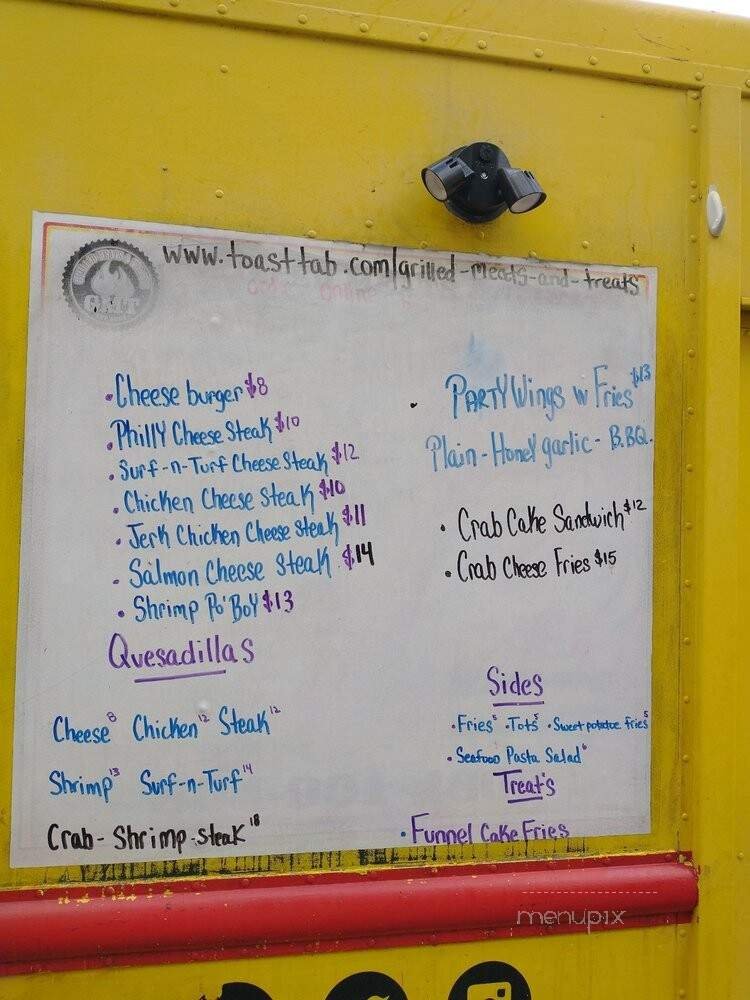 www.toasttab.com/grilled-meats-and-treats
online
• Cheese burger $8
• Philly Cheese Steak $10
• Surf-n-Turf Cheese Steak $12
• Chicken Cheese Steak $10
• Jerk Chicken Cheese Steak $11
• Salmon Cheese Steak $14
• Shrimp Po' Boy $13
Quesadillas
Cheese 8 Chicken 12 Steak 12
Shrimp 13 Surf-n-Turf 14
Crab-Shrimp-steak 18
• PARTY Wings w Fries $13
Plain-Honey garlic-B.BQ.
• Crab Cake Sandwich $12
• Crab Cheese Fries $15
Sides
• Fries 5 • Tots 5 • Sweet potatoe fries 5
• Seafood Pasta Salad 6
Treat's
• Funnel Cake Fries
menupix